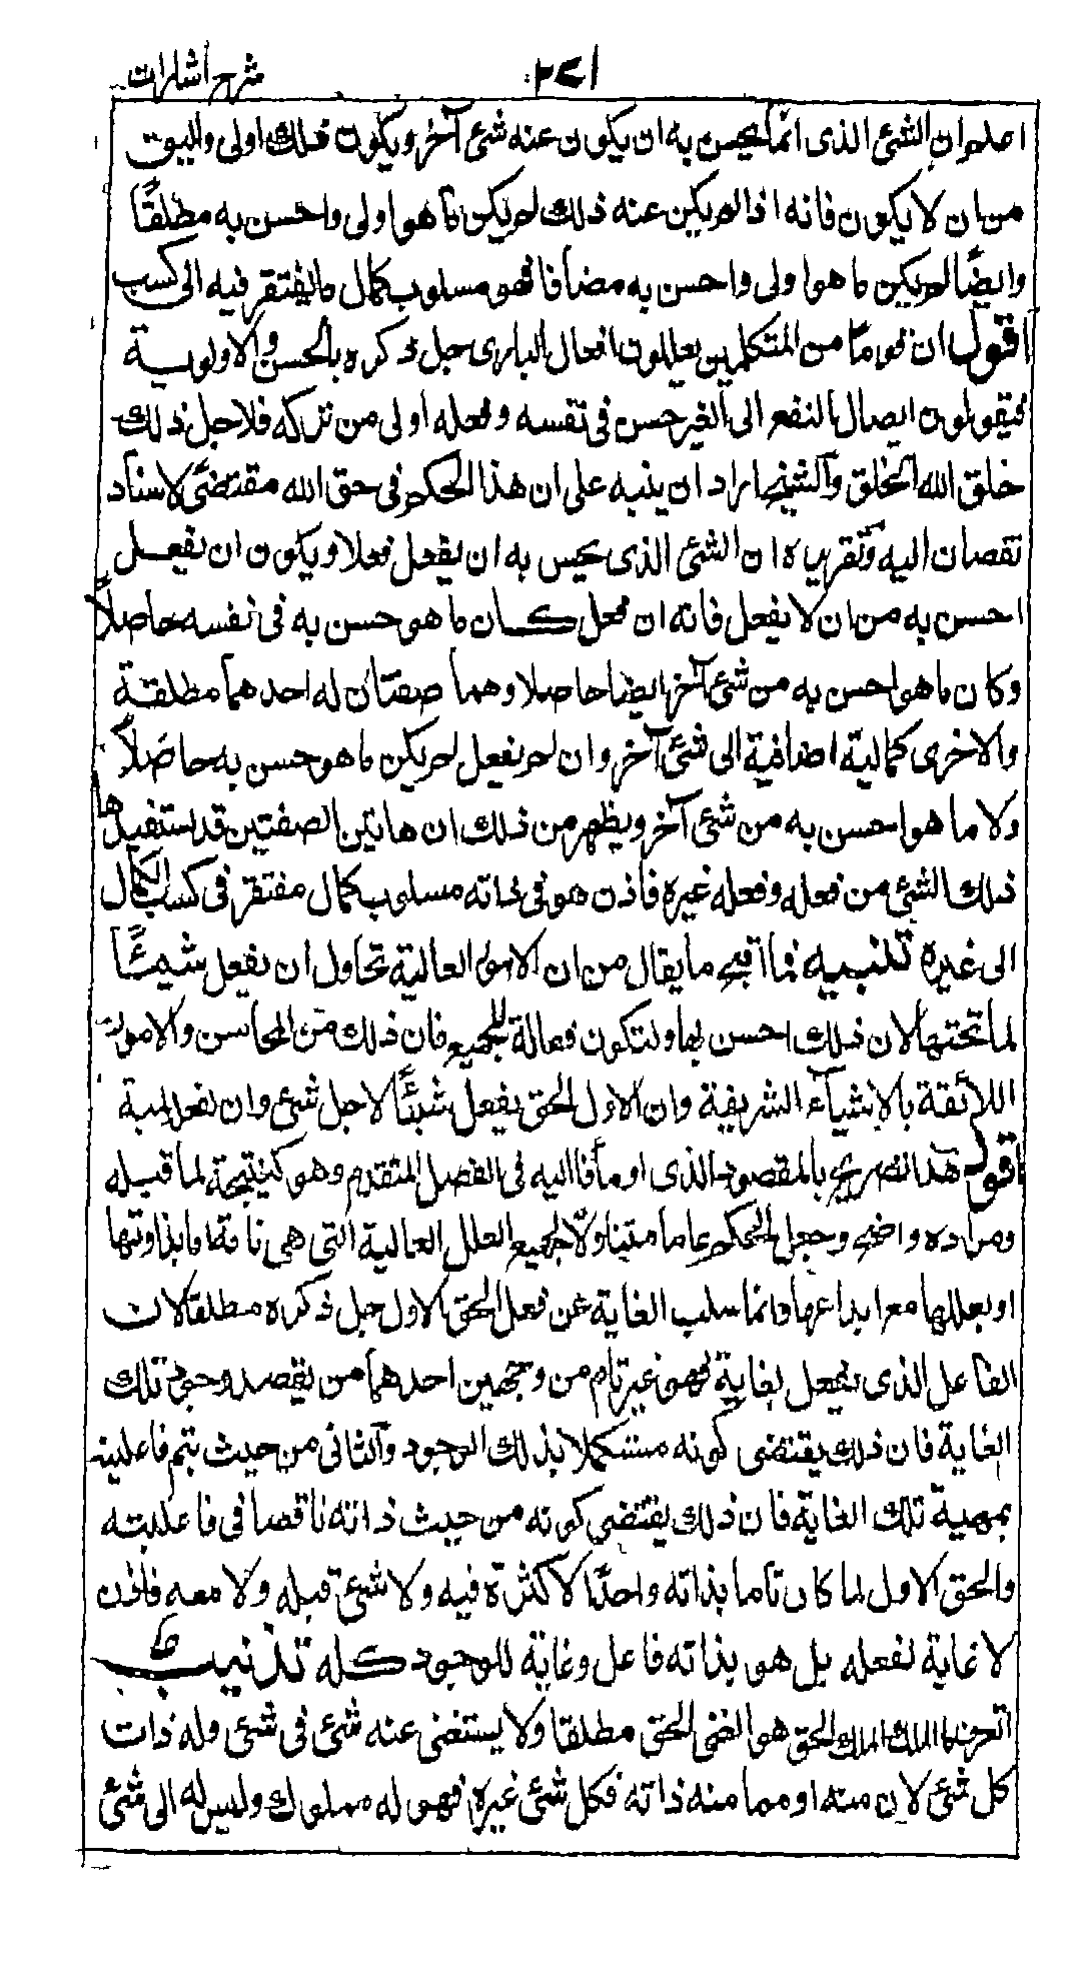 شرح اشارات
اعلم ان الشئ الذى انما يحسن به ان يكون عنه شئ آخر ويكون ذلك اولى واليق
من ان لا يكون فانه اذا لم يكن عنه ذلك لم يكن ما هو اولى واحسن به مطلقًا
وايضًا لم يكن ما هو اولى واحسن به مضافا فهو مسلوب كمال ما يفتقر فيه الى كسب
اقول ان قوما من المتكلمين يعللون افعال البارى جل ذكره بالحسن والاولوية
فيقولون ايصال النفع الى الغير حسن فى نفسه وفعله اولى من تركه فلاجل ذلك
خلق الله الخلق والشيخ اراد ان ينبه على ان هذا الحكم فى حق الله مقتضى لاسناد
نقصان اليه وتقريره ان الشئ الذى يحسن به ان يفعل فعلا ويكون ان يفعل
احسن به من ان لا يفعل فانه ان فعل كان ما هو حسن به فى نفسه حاصلاً
وكان ما هو احسن به من شئ آخر ايضا حاصلا وهما صفتان له احدهما مطلقة
والاخرى كمالية اضافية الى شئ آخر وان لم يفعل لم يكن ما هو حسن به حاصلاً
ولا ما هو احسن به من شئ آخر ويظهر من ذلك ان هاتين الصفتين قد يستفيدها
ذلك الشئ من فعله وفعله غيره فاذن هو فى ذاته مسلوب كمال مفتقر فى كسب الكمال
الى غيره تنبيه فما اقبح ما يقال من ان الامور العالية تحاول ان يفعل شيئًا
لما تحتها لان ذلك احسن بها ولتكون فعالة للجميع فان ذلك من المحاسن والامور
اللائقة بالاشياء الشريفة وان الاول الحق يفعل شيئًا لاجل شئ وان لفعله لمية
اقول هذا تصريح بالمقصود الذى اومأنا اليه فى الفصل المتقدم وهو كنتيجة لما قبله
ومراده واضح وجعل الحكم عاما متناولاً لجميع العلل العالية التى هى تامة اما بذاوتها
او بعللها مع ابداعها وانما سلب الغاية عن فعل الحق الاول جل ذكره مطلقا لان
الفاعل الذى يفعل لغاية فهو غير تام من وجهين احدهما من يقصد وجود تلك
الغاية فان ذلك يقتضى كونه مستكملا بذلك الوجود والثانى من حيث يتم فاعليته
بمهية تلك الغاية فان ذلك يقتضى كونه من حيث ذاته ناقصا فى فاعليته
والحق الاول لما كان تاما بذاته واحدًا لا كثرة فيه ولا شئ قبله ولا معه فاذن
لا غاية لفعله بل هو بذاته فاعل وغاية للوجود كله تذنيب
اتعرف ما الملك الملك الحق هو الغنى الحق مطلقا ولا يستغنى عنه شئ فى شئ وله ذات
كل شئ لان منه او مما منه ذاته فكل شئ غيره فهو له مملوك وليس له الى شئ